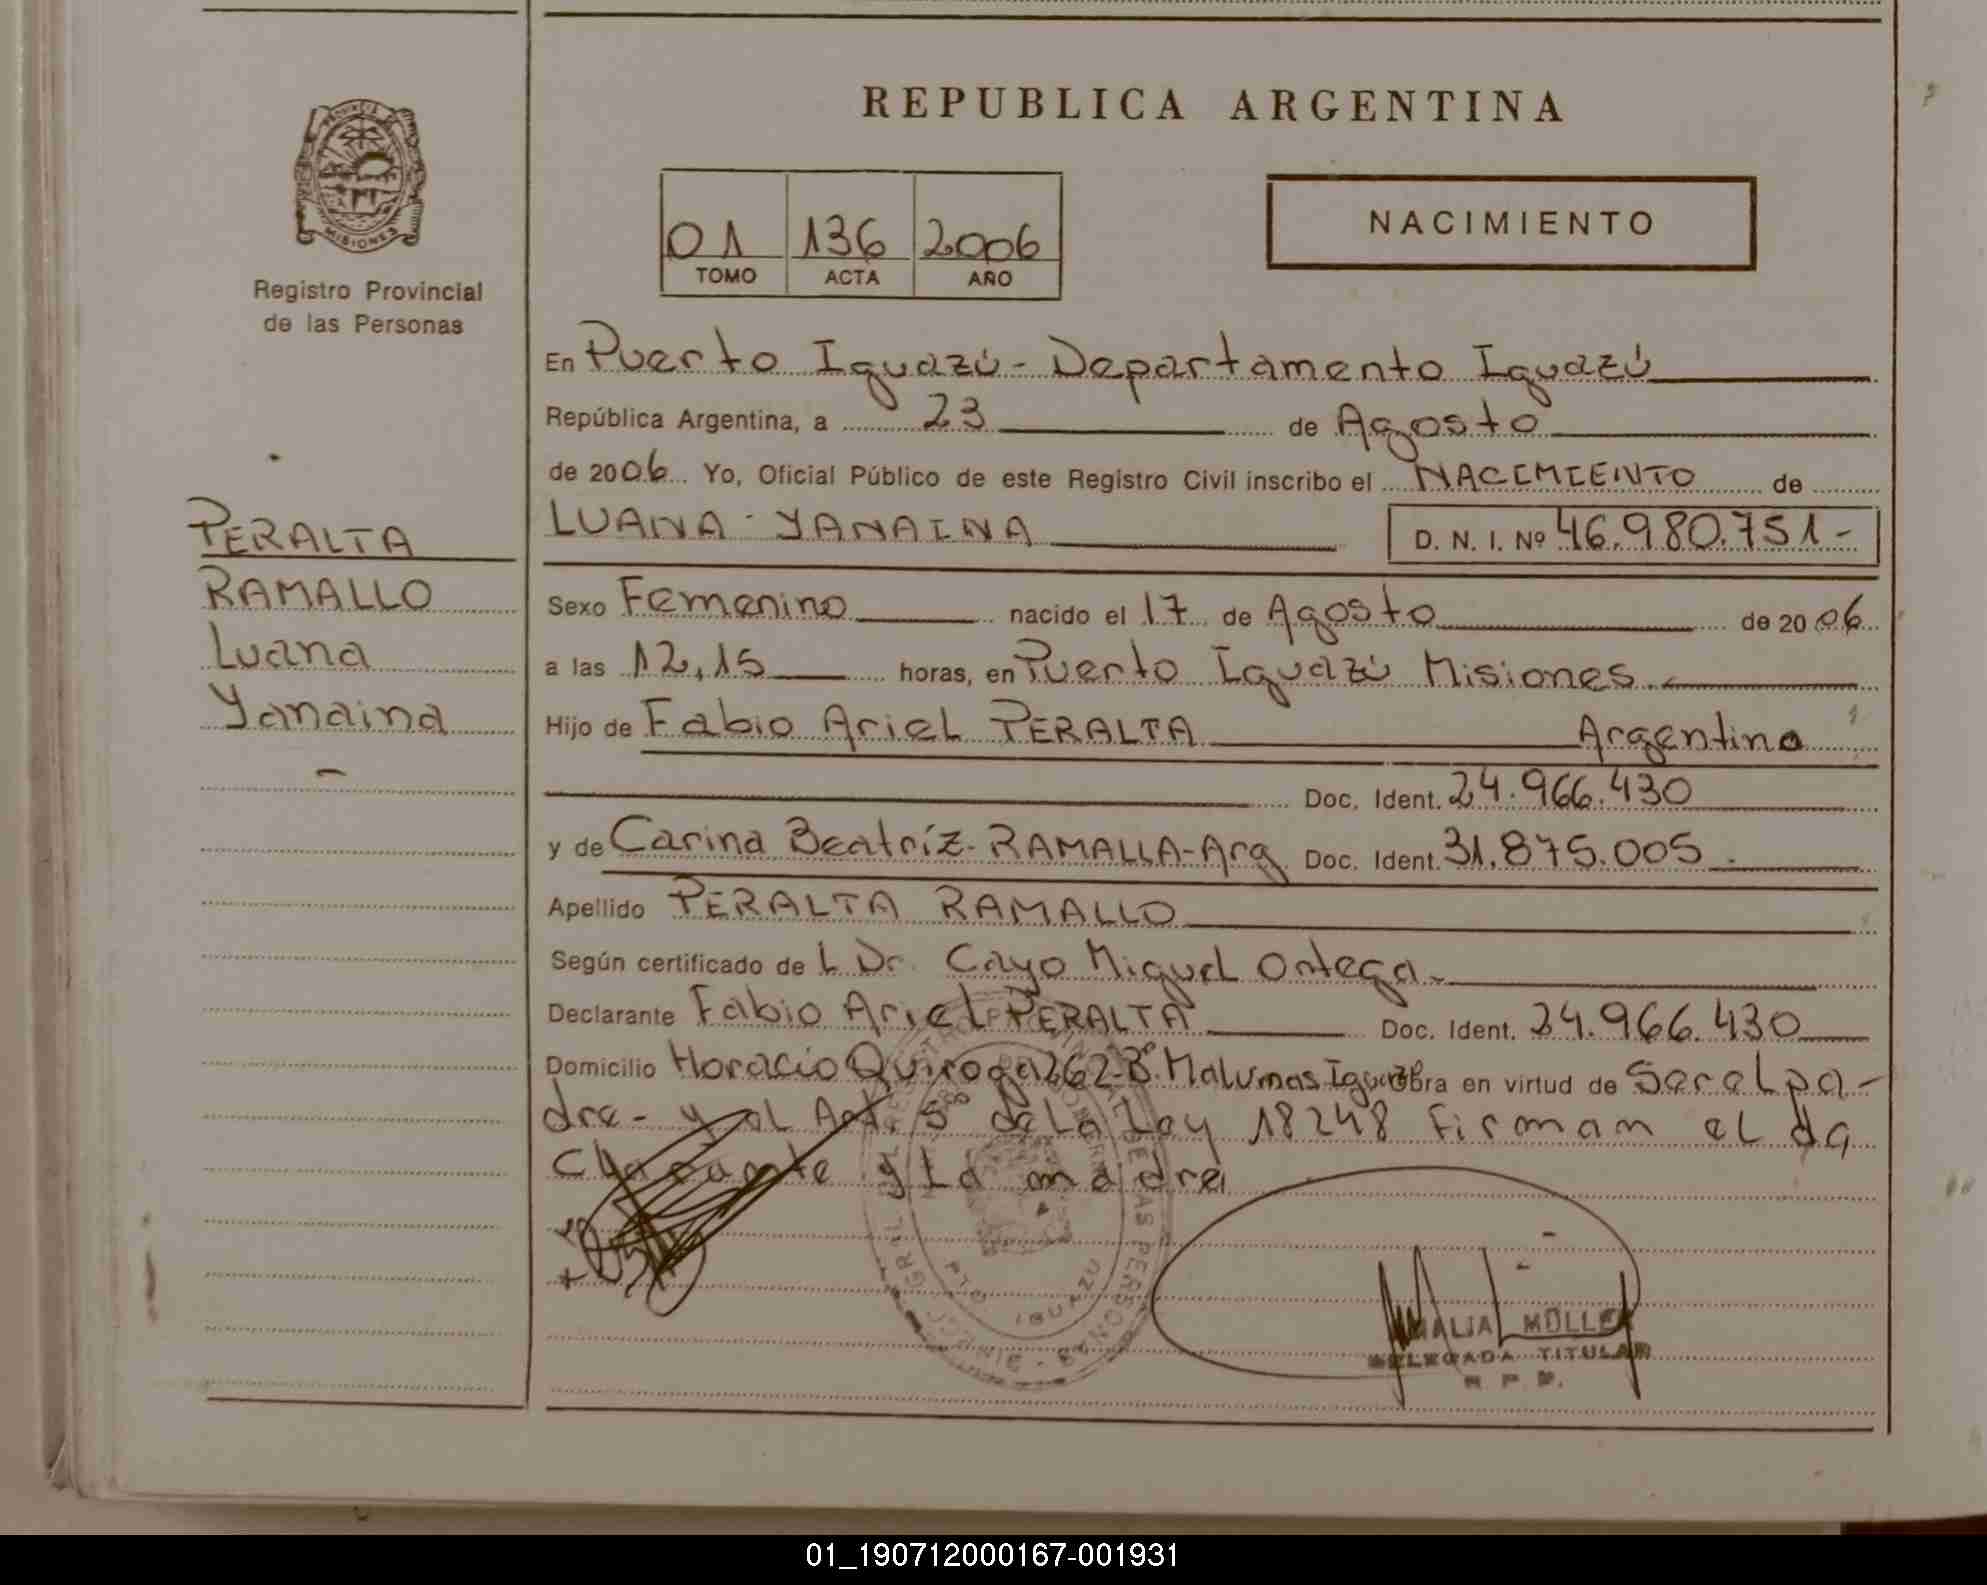 REPUBLICA ARGENTINA
PROVINCIA DE
MISIONES
Registro Provincial
de las Personas
01 136 2006
TOMO ACTA AÑO
NACIMIENTO
En Puerto Iguazú - Departamento Iguazú
República Argentina, a 23 de Agosto
de 2006 Yo, Oficial Público de este Registro Civil inscribo el NACIMIENTO de
LUANA YANAINA D. N. I. Nº 46.980.751-
PERALTA
RAMALLO
Luana
Yanaina
Sexo Femenino nacido el 17 de Agosto de 2006
a las 12,15 horas, en Puerto Iguazú Misiones
Hijo de Fabio Ariel PERALTA Argentino
Doc. Ident. 24.966.430
y de Carina Beatríz - RAMALLA - Arg Doc. Ident. 31.875.005
Apellido PERALTA RAMALLO
Según certificado de L Dr. Cayo Miguel Ortega
Declarante Fabio Ariel PERALTA Doc. Ident. 24.966.430
Domicilio Horacio Quiroga 262-Bº Malvinas Iguazú Obra en virtud de Ser el pa-
dre - y al Art. 5º de La Ley 18248 Firman el de
Clarante y La madre
PTO IGUAZU
AMALIA MÜLLER
DELEGADA TITULAR
R. P. P.
01_190712000167-001931